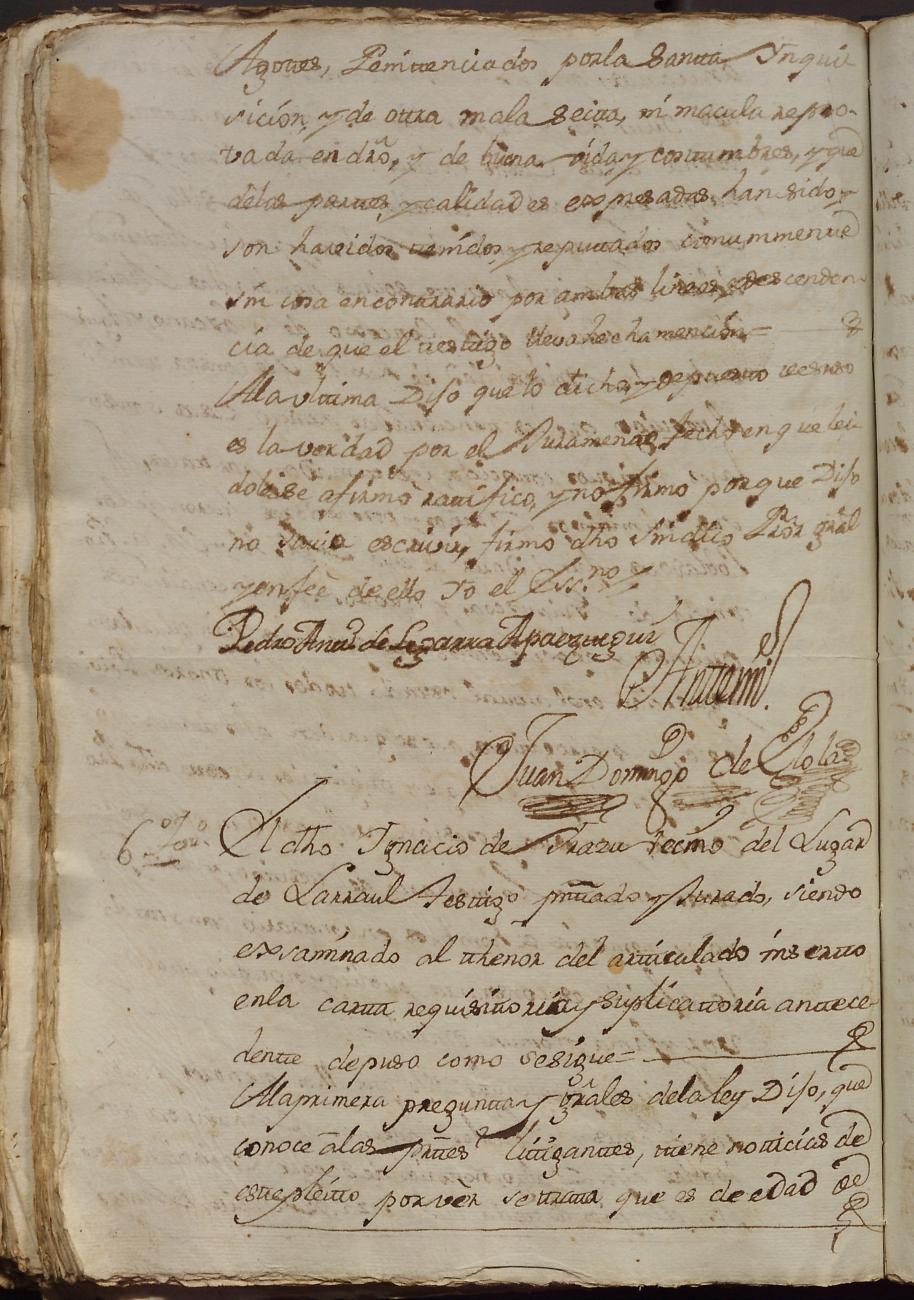 Agotes, Penitenciados por la Santta Ynqui
sición, y de otra mala Secta, ni macula repro-
vada en dro, y de buena vida y costumbres, y que
de las partes, y calidades expresadas han sido, y
son havidos ttenidos, y reputtados comunmente
sin cosa en conttrario por ambas lineas, y descenden
cia de que el testigo lleva hecha mención=
Ala ulttima Dijo que lo dicho, y depuesto
es la verdad por el Juramento fecho en que lei
dole se afirmó rattificó, y no firmó porque Dijo
no savia escrivir, firmó dho Sindico Pror gral
y en feè de ello Yo el Essno
Pedro Antto de Legarra Aparategui
Antemi
Juan Domingo de Elola
6 to El dho Ignacio de Yrazu vecino del Lugar
de Larraul testigo pnttado y Jurado, siendo
exsaminado al thenor del artticulado insertto
en la cartta requisittoria, y Suplicattoria anttece-
dentte depuso como se sigue=
Ala primera preguntta y Grales de la ley Dijo, que
conoce à las parttes littigantes, ttiene notticias de
este pleitto por ver se ttratta que es de edad de